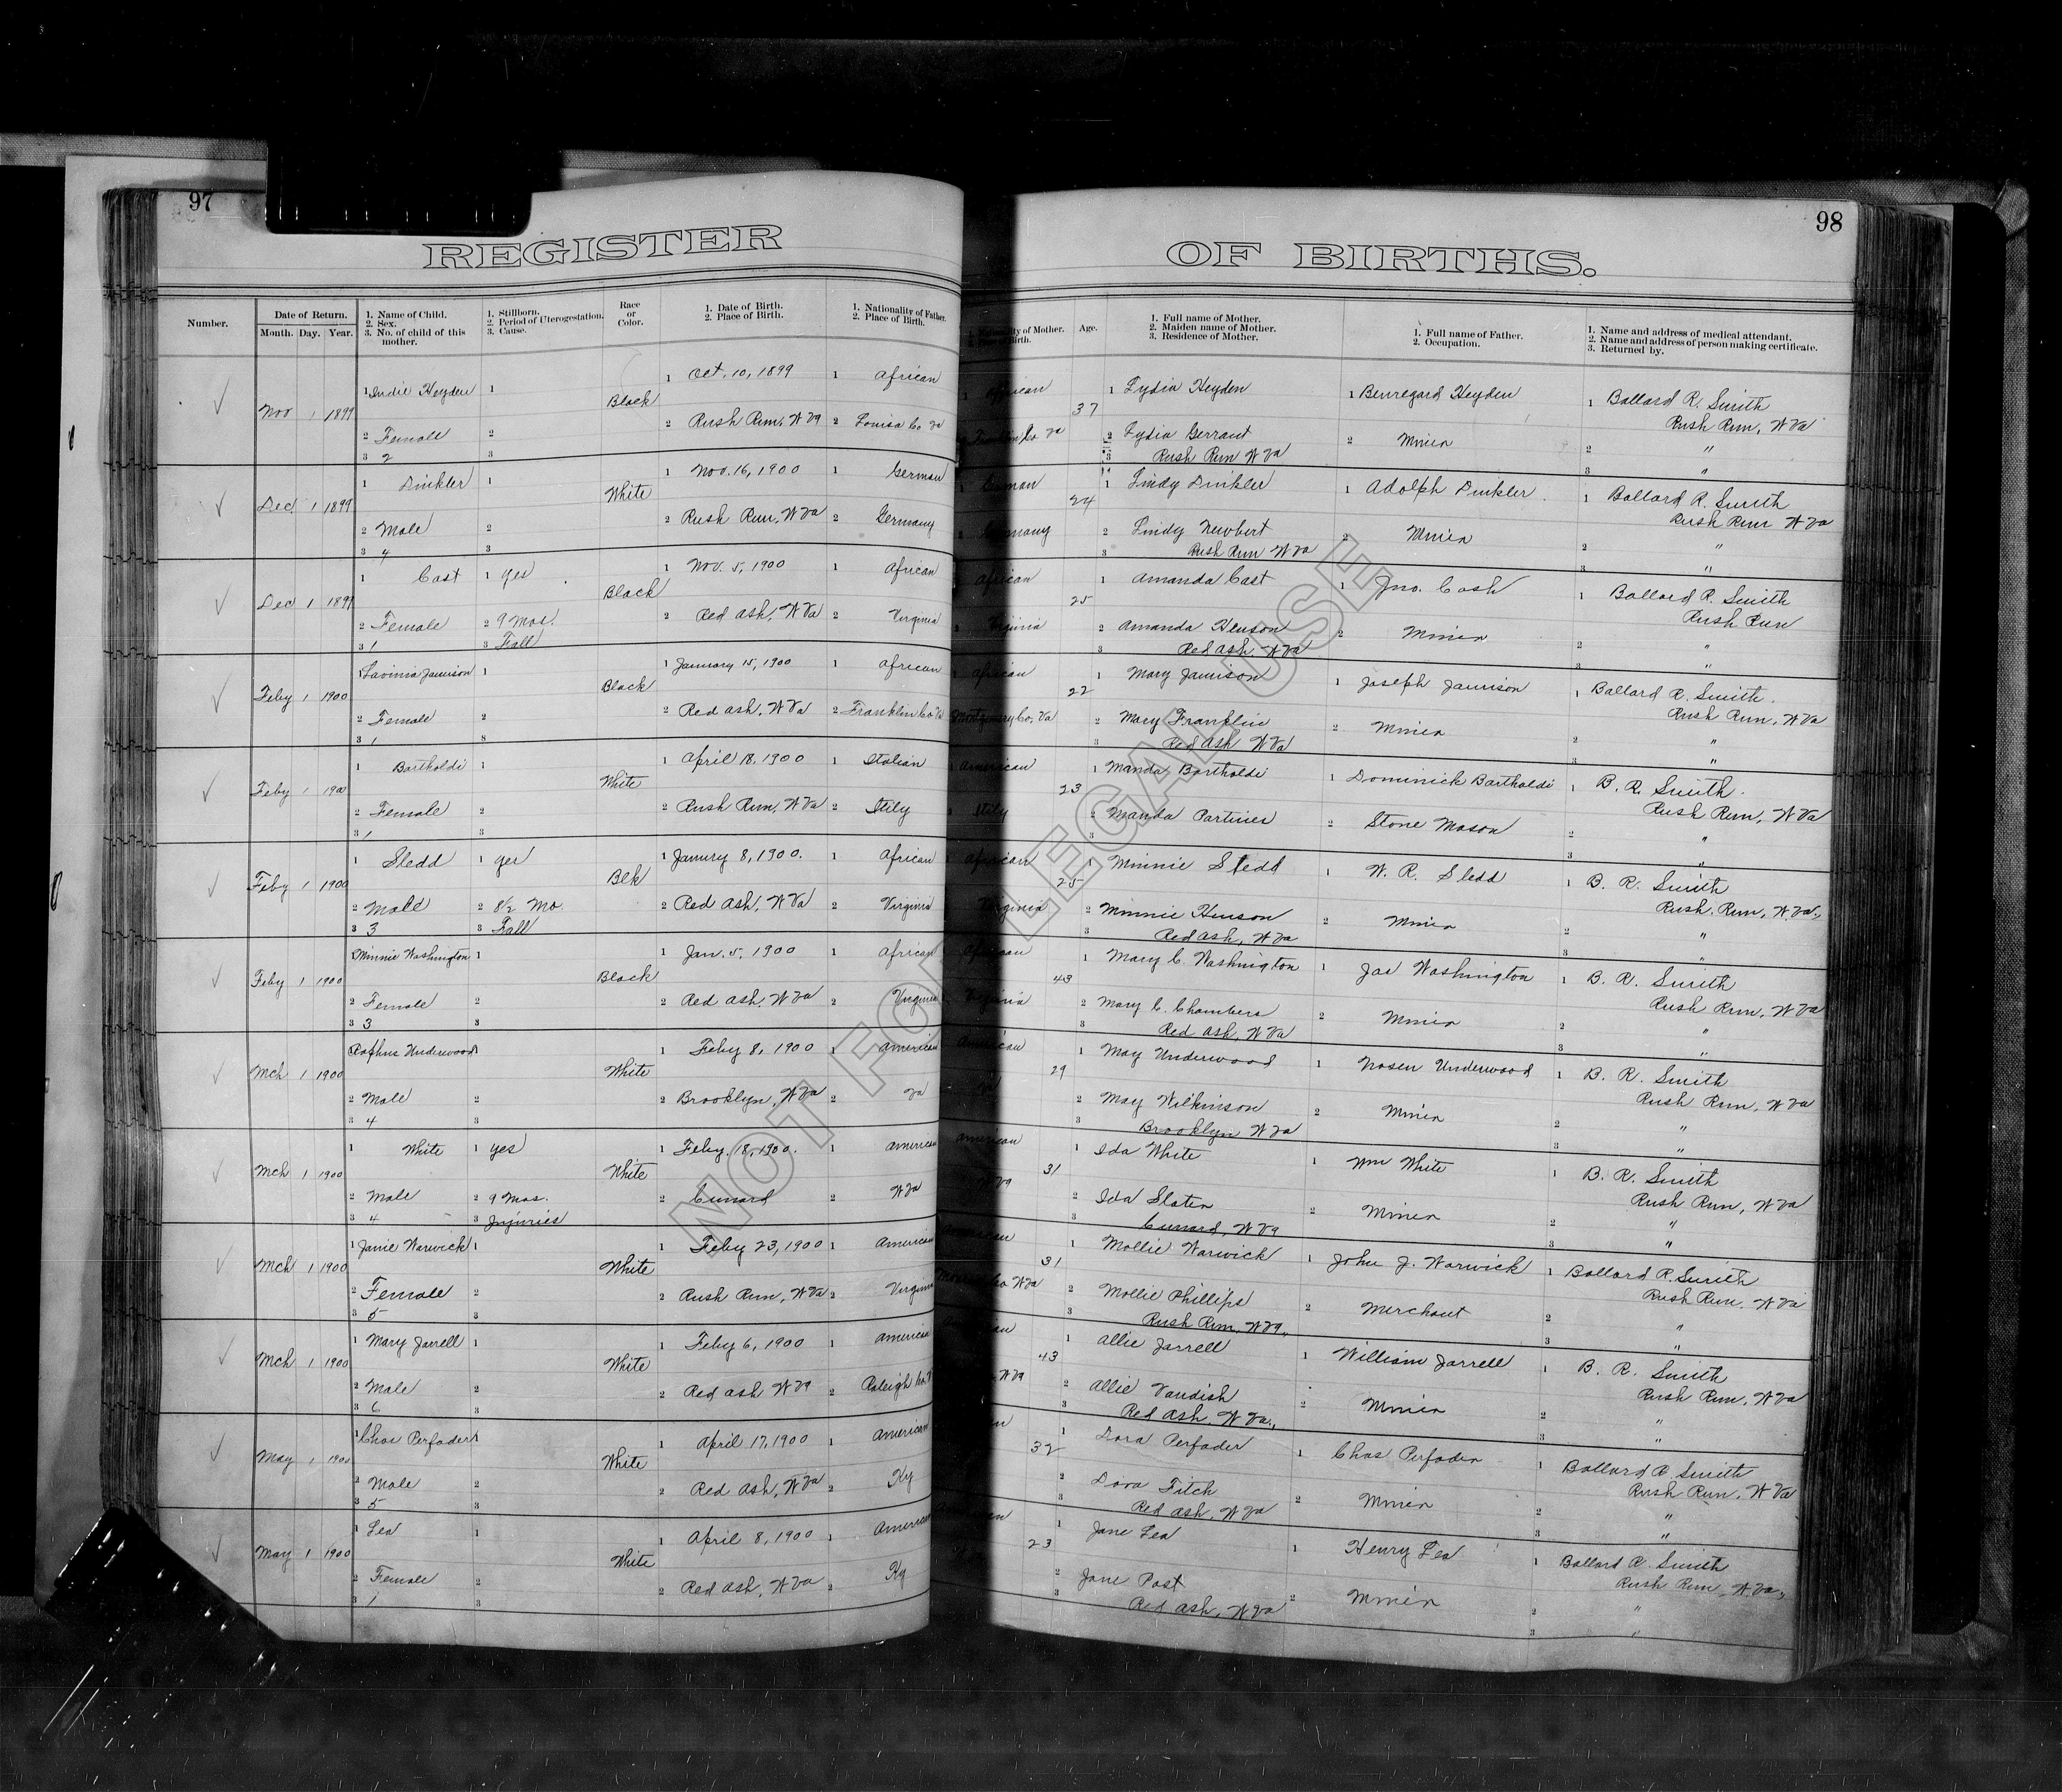 97
98
REGISTER OF BIRTHS.
Number.
Date of Return.
Month. Day. Year.
1. Name of Child.
2. Sex.
3. No. of child of this mother.
1. Stillborn.
2. Period of Uterogestation.
3. Cause.
Race or Color.
1. Date of Birth.
2. Place of Birth.
1. Nationality of Father.
2. Place of Birth.
of Mother.
Age.
1. Full name of Mother.
2. Maiden name of Mother.
3. Residence of Mother.
1. Full name of Father.
2. Occupation.
1. Name and address of medical attendant.
2. Name and address of person making certificate.
3. Returned by.
Nov 1 1899 1 Heyden 1 Black 1 Oct. 10, 1899 1 African 1 African 37 1 Lydia Heyden 1 Benregard Heyden 1 Ballard R. Smith
Rush Run, W Va
2 Female 2 2 Rush Run, W Va 2 Louisa Co Va Co Va 2 Lydia Gerrant 2 Miner 2 "
3 2 3 3 Rush Run W Va 3 "
Dec 1 1899 1 Dinkler 1 White 1 Nov. 16, 1900 1 German 24 1 Lindy Dinkler 1 Adolph Dinkler 1 Ballard R. Smith
Rush Run W Va
2 Male 2 2 Rush Run, W Va 2 Germany 2 Lindy Newbert 2 Miner 2 "
3 4 3 3 Rush Run W Va 3 "
Dec 1 1899 1 Cast 1 yes Black 1 Nov. 5, 1900 1 African African 25 1 Amanda Cast 1 Jno. Cash 1 Ballard R. Smith
Rush Run
2 Female 2 9 Mos. 2 Red Ash, W Va 2 Virginia 2 Virginia 2 Amanda Henson 2 Miner 2 "
3 1 3 Fall 3 Red Ash W Va 3 "
Feby 1 1900 1 Lavinia Jamison 1 Black 1 January 15, 1900 1 African African 22 1 Mary Jamison 1 Joseph Jamison 1 Ballard R. Smith.
Rush Run, W Va
2 Female 2 2 Red Ash, W Va 2 Franklin Co Va Montgomery Co, Va 2 Mary Franklin 2 Miner 2 "
3 1 3 3 Red Ash W Va 3 "
Feby 1 190 1 Bartholdi 1 White 1 April 18, 1900 1 Italian American 23 1 Manda Bartholdi 1 Dominick Bartholdi 1 B. R. Smith.
Rush Run, W Va
2 Female 2 2 Rush Run, W Va 2 Itily Itily 2 Manda 2 Stone Mason 2 "
3 1 3 3 3 "
Feby 1 1900 1 Sledd 1 yes Blk 1 Janury 8, 1900. 1 African African 25 1 Minnie Sledd 1 W. R. Sledd 1 B. R. Smith
Rush Run, W Va.
2 Male 2 8½ Mo. 2 Red Ash, W Va 2 Virginia Virginia 2 Minnie Henson 2 Miner 2 "
3 3 3 Fall 3 Red Ash, W Va 3 "
Feby 1 1900 1 Minnie Washington 1 Black 1 Jan. 5, 1900 1 African African 43 1 Mary C. Washington 1 Jas Washington 1 B. R. Smith
Rush Run, W Va
2 Female 2 2 Red Ash, W Va 2 Virginia Virginia 2 Mary C. Chambers 2 Miner 2 "
3 3 3 3 Red Ash, W Va 3 "
Mch 1 1900 1 Underwood 1 White 1 Feby 8, 1900 1 American American 29 1 May Underwood 1 Underwood 1 B. R. Smith
Rush Run, W Va
2 Male 2 2 Brooklyn, W Va 2 Va 2 May Wilkinson 2 Miner 2 "
3 4 3 3 Brooklyn W Va 3 "
Mch 1 1900 1 White 1 yes White 1 Feby. 18, 1900. 1 American American 31 1 Ida White 1 Wm White 1 B. R. Smith
Rush Run, W Va
2 Male 2 9 Mos. 2 Cunard 2 W Va W Va 2 Ida Slater 2 Miner 2 "
3 4 3 Injuries 3 Cunard, W Va 3 "
Mch 1 1900 1 Janie Warwick 1 White 1 Feby 23, 1900 1 American 31 1 Mollie Warwick 1 John J. Warwick 1 Ballard R. Smith
Rush Run, W Va
2 Female 2 2 Rush Run, W Va 2 Virginia Co W Va 2 Mollie Phillips 2 Merchant 2 "
3 5 3 3 Rush Run, W Va 3 "
Mch 1 1900 1 Mary Jarrell 1 White 1 Feby 6, 1900 1 American 43 1 Allie Jarrell 1 William Jarrell 1 B. R. Smith
Rush Run, W Va
2 Male 2 2 Red Ash W Va 2 Raleigh Co. W Va 2 Allie Vandish 2 Miner 2 "
3 6 3 3 Red Ash, W Va. 3 "
May 1 1900 1 Chas Perfader 1 White 1 April 17, 1900 1 American 32 1 Dora Perfader 1 Chas Perfader 1 Ballard R. Smith
Rush Run, W Va
2 Male 2 2 Red Ash, W Va 2 Ky 2 Dora Fitch 2 Miner 2 "
3 5 3 3 Red Ash, W Va 3 "
May 1 1900 1 Lea 1 White 1 April 8, 1900 1 American 23 1 Jane Lea 1 Henry Lea 1 Ballard R. Smith
Rush Run, W Va.
2 Female 2 2 Red Ash, W Va 2 Ky 2 Jane Post 2 Miner 2 "
3 1 3 3 Red Ash, W Va 3 "
NOT FOR LEGAL USE